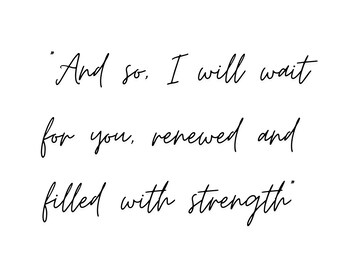 "And so, I will wait
for you, renewed and
filled with strength"